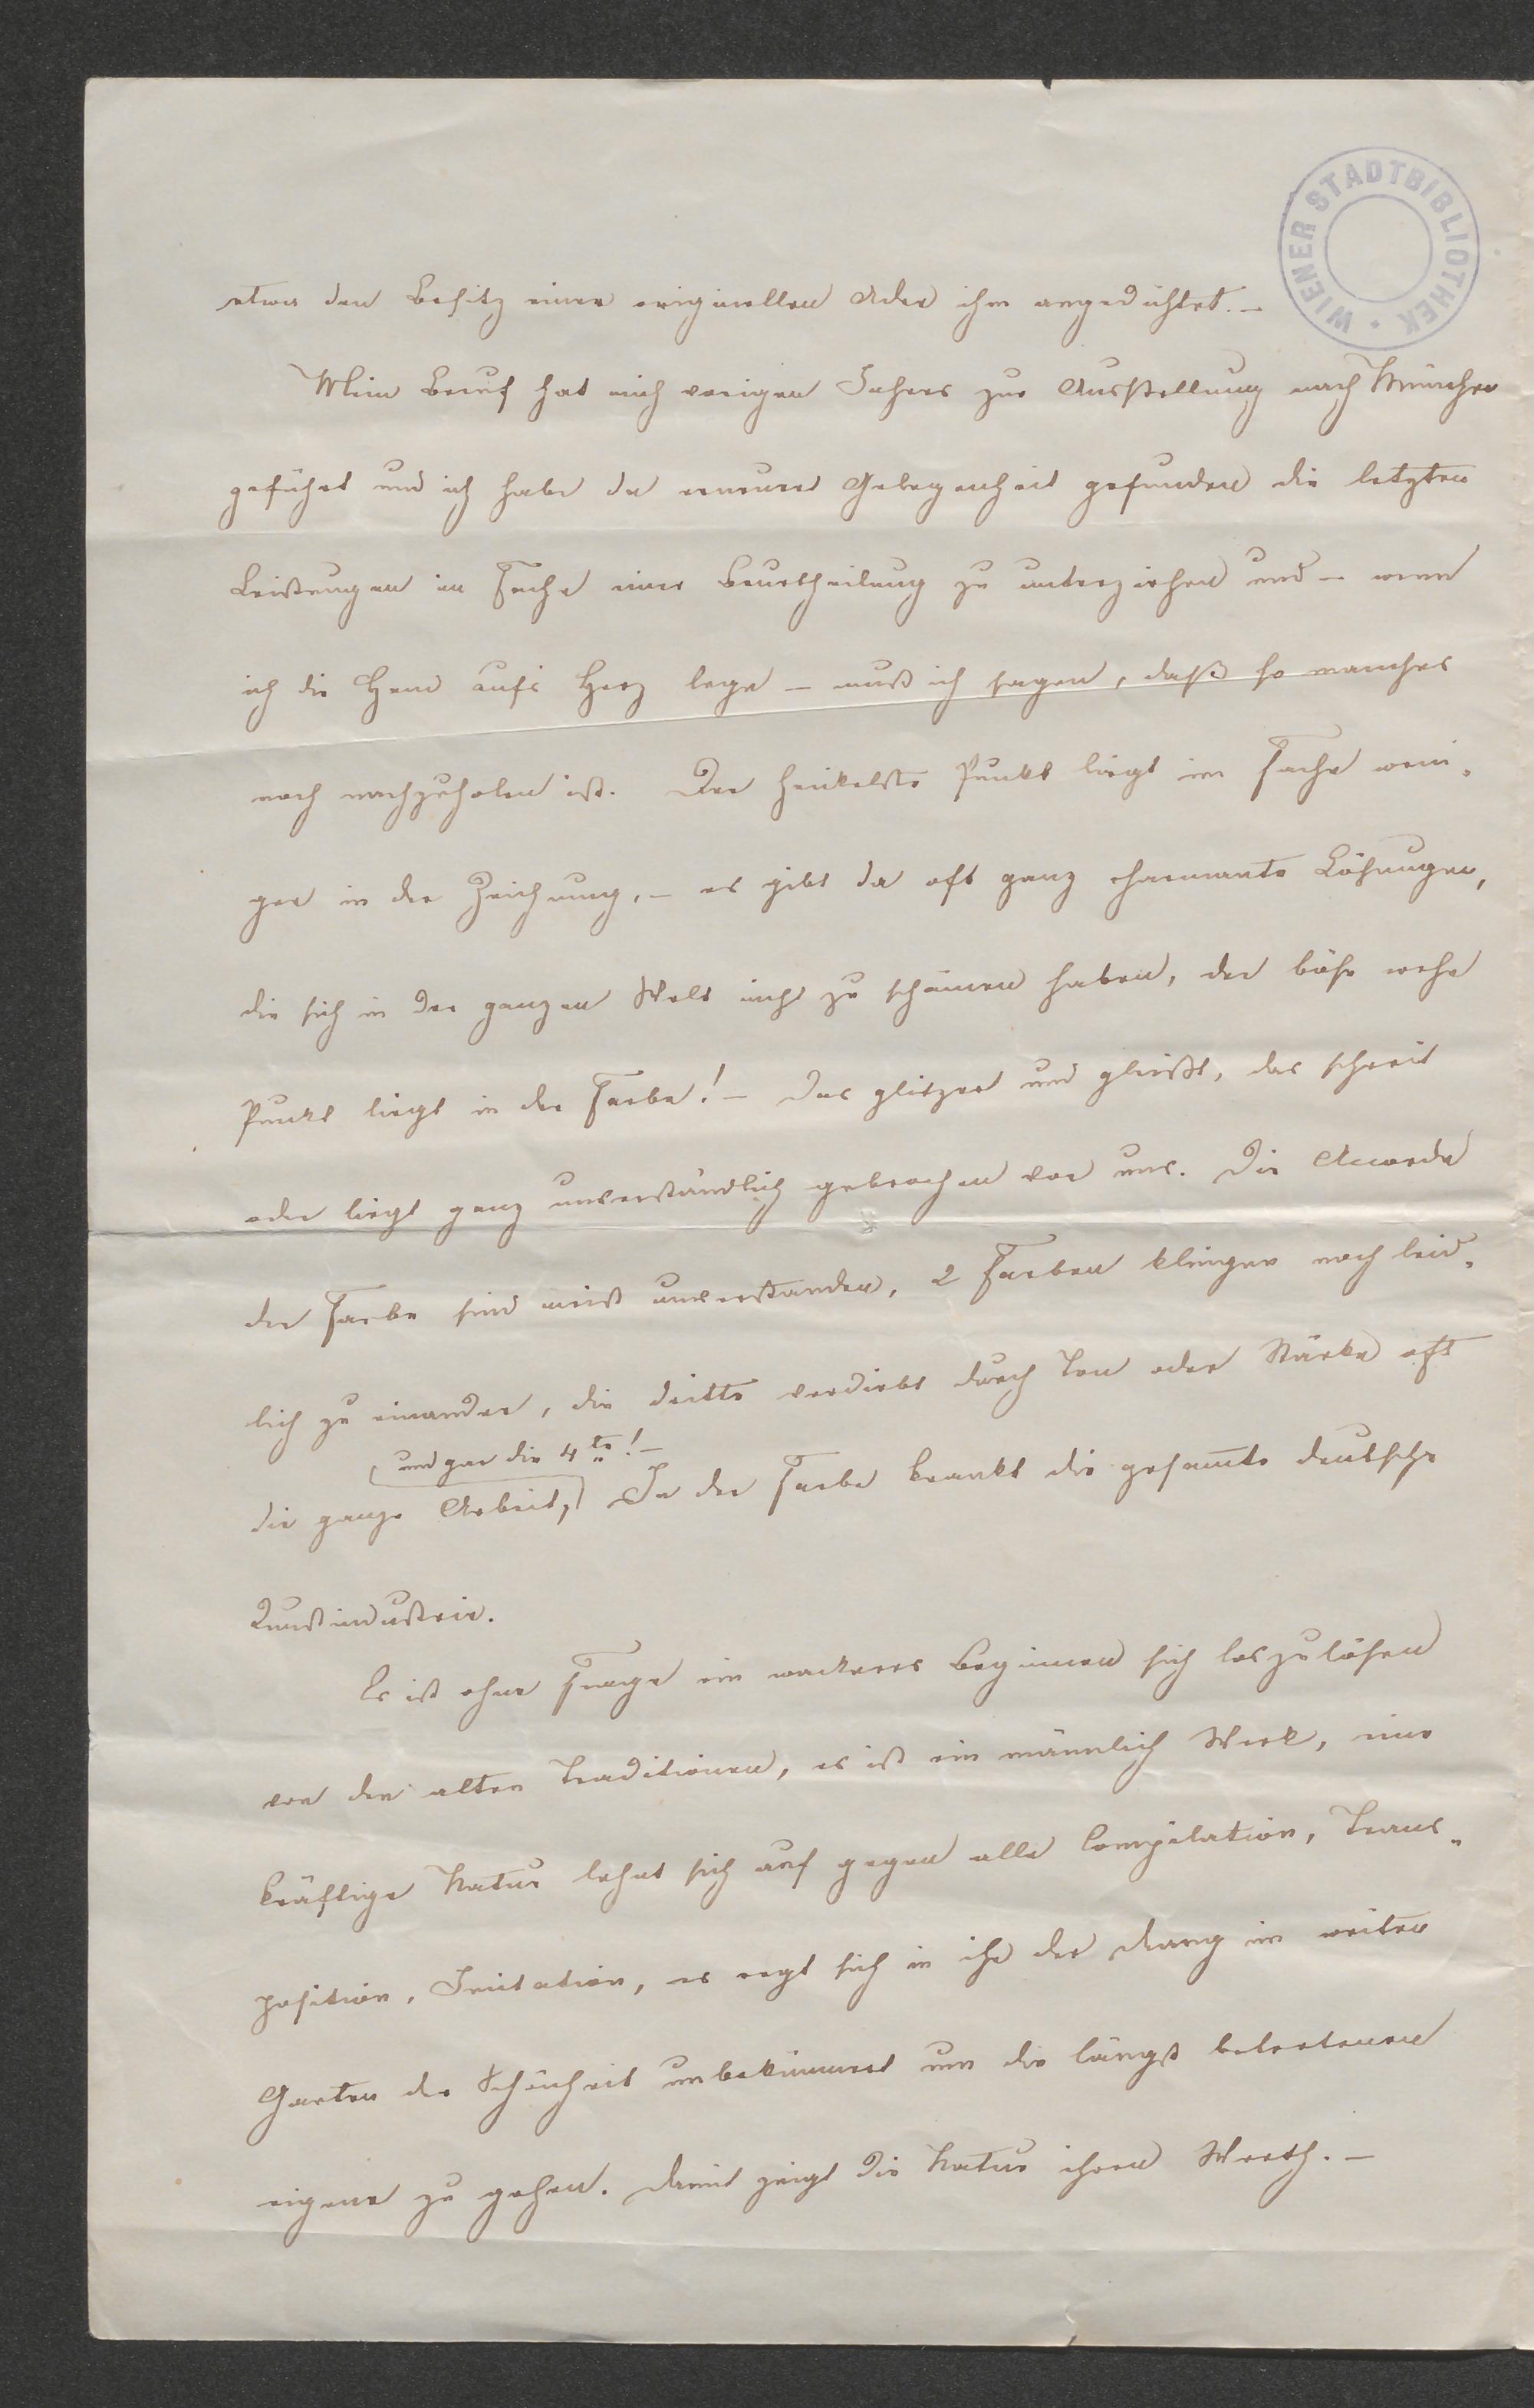 WIENER STADTBIBLIOTHEK
etwa den Besitz einer originellen Ader ihm angedichtet. –
Mein Beruf hat mich vorigen Jahres zur Ausstellung nach München
geführt und ich habe da erneuert Gelegenheit gefunden die letzten
Leistungen im Fache einer Beurtheilung zu unterziehen und – wenn
ich die Hand aufs Herz lege – muß ich sagen, daß so manches
noch nachzuholen ist. Der heikelste Punkt liegt im Fache weni-
ger in der Zeichnung, – es gibt da oft ganz charmante Lösungen,
die sich in der ganzen Welt nicht zu schämen haben, der böse wehe
Punkt liegt in der Farbe! – Das glitzert und gleißt, das schreit
oder liegt ganz unverständlich gebrochen vor uns. Die Accorde
der Farbe sind meist unverstanden, 2 Farben klingen noch leid-
lich zu einander, die dritte verdirbt durch Ton oder Stärke oft
und gar die 4te! –
die ganze Arbeit, In der Farbe krankt die gesamte deutsche
Kunstindustrie.
Es ist ohne Frage ein wackeres Beginnen sich loszulösen
von den alten Traditionen, es ist ein männlich Werk, eine
kräftige Natur lehnt sich auf gegen alle Compilation, Trans-
position, Imitation, es regt sich in ihr der Drang im weiten
Garten der Schönheit unbekümmert um die längst betretenen
eigene zu gehen. Damit zeigt die Natur ihren Werth. –